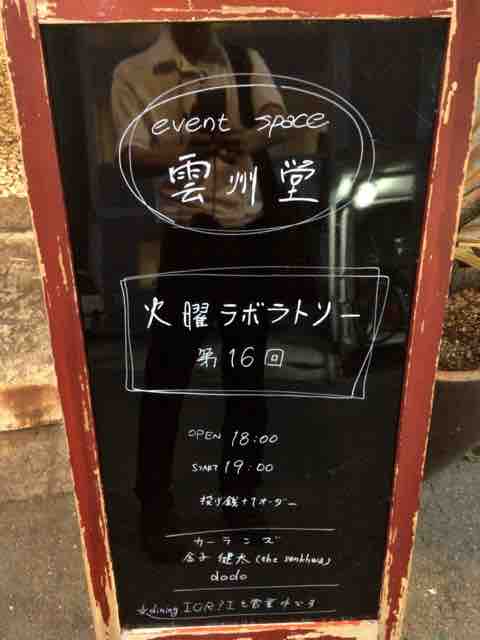 event space
雲州堂
火曜ラボラトリー
第16回
OPEN 18:00
START 19:00
投げ銭+1オーダー
カーランズ
金子健太(the sankhwa)
dodo
↓dining IGR?Iも営業中です